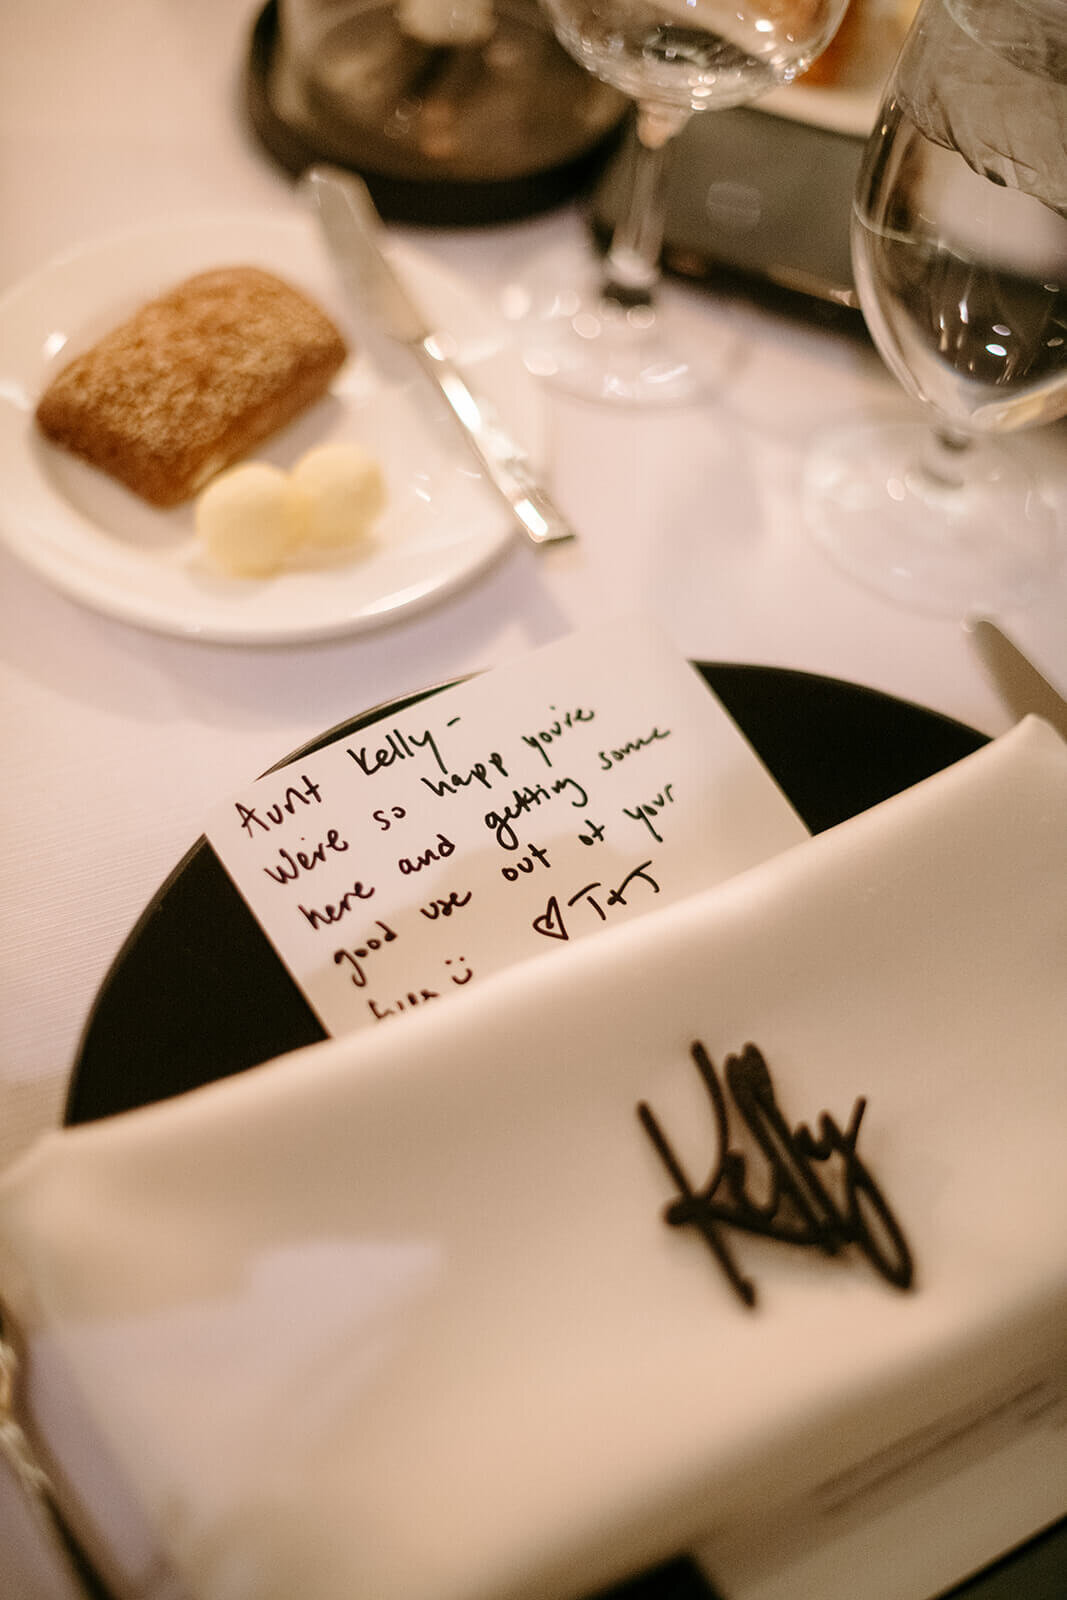 Aunt Kelly-
We're so happ you're
here and getting some
good use out of your
♡ T+T
:)
Kelly